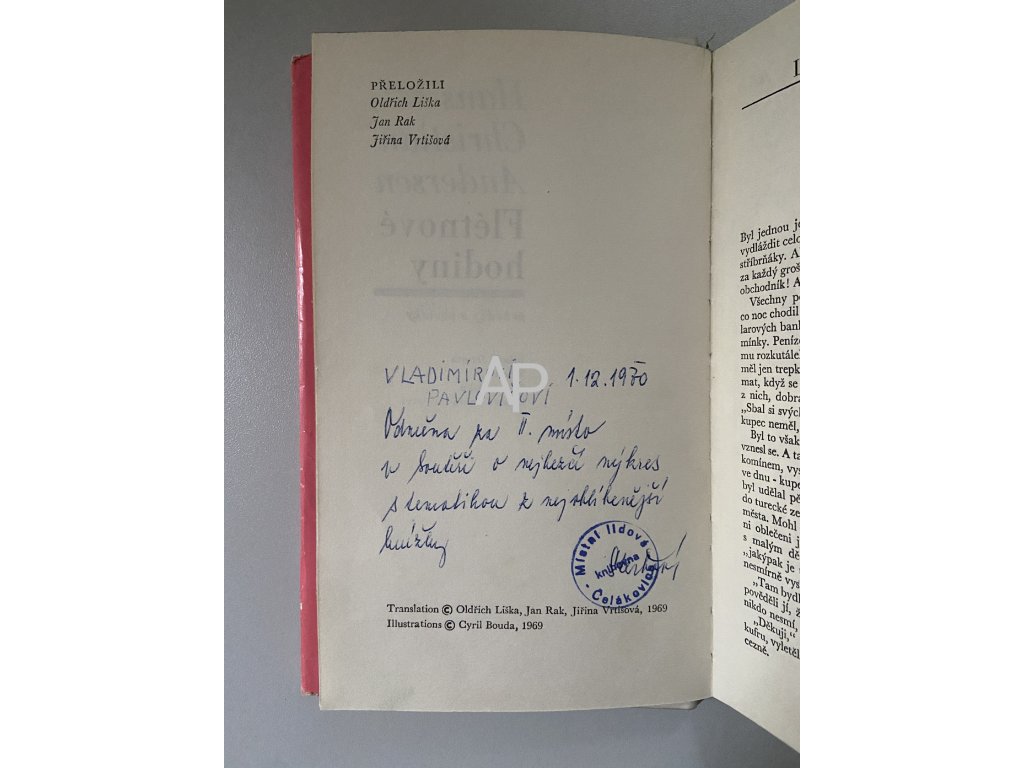 PŘELOŽILI
Oldřich Liška
Jan Rak
Jiřina Vrtišová
Hans
Anderson
Flétnové
hodiny
AP
VLADIMÍROVI 1.12.1970
PAVLOVIČOVI
Odměna za II. místo
v soutěži o nejhezčí výkres
s tematikou z nejoblíbenější
knížky
Místní lidová
knihovna
- Čelákovice -
Translation © Oldřich Liška, Jan Rak, Jiřina Vrtišová, 1969
Illustrations © Cyril Bouda, 1969
Byl jednou
vydláždit
stříbrňáky. A
za každý
obchodník! A
Všechny
co noc chodil
larových
mínky.
mu
měl jen
mat, když se
z nich,
„Sbal si svých
kupec neměl,
Byl to však
vznesl se. A
komínem,
ve dnu -
byl udělal
do turecké
města. Mohl
ni oblečeni
s malým
„jakýpak je
nesmírně
„Tam
pověděli jí,
nikdo nesmí,
„Děkuji,“
kufru,